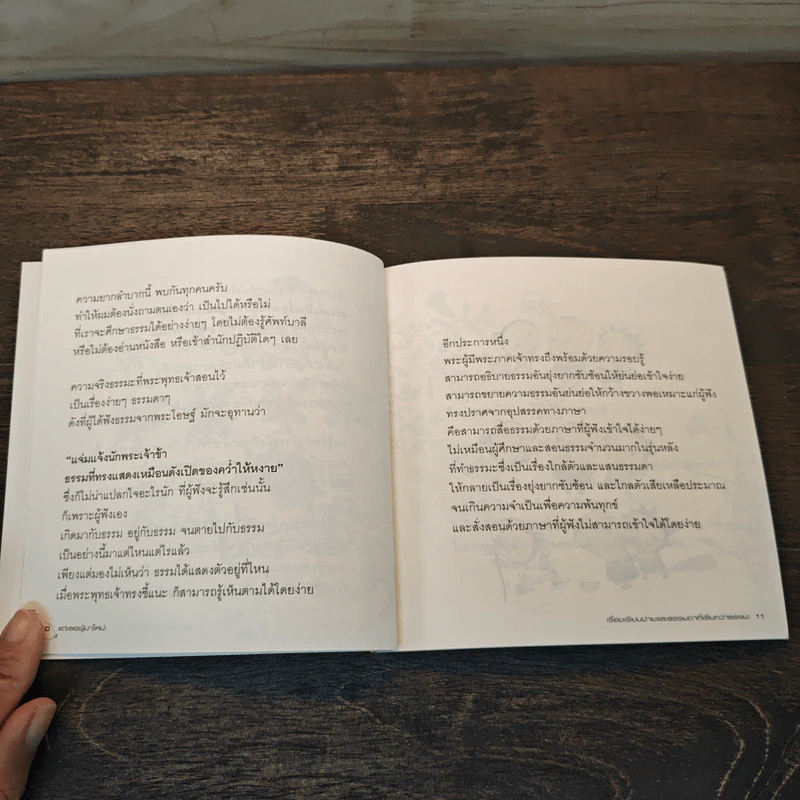 ความยากลำบากนี้ พบกันทุกคนครับ
ทำให้ผมต้องนั่งถามตนเองว่า เป็นไปได้หรือไม่
ที่เราจะศึกษาธรรมได้อย่างง่ายๆ โดยไม่ต้องรู้ศัพท์บาลี
หรือไม่ต้องอ่านหนังสือ หรือเข้าสำนักปฏิบัติใดๆ เลย
ความจริงธรรมะที่พระพุทธเจ้าสอนไว้
เป็นเรื่องง่ายๆ ธรรมดาๆ
ดังที่ผู้ได้ฟังธรรมจากพระโอษฐ์ มักจะอุทานว่า
“แจ่มแจ้งนักพระเจ้าข้า
ธรรมที่ทรงแสดงเหมือนดังเปิดของคว่ำให้หงาย”
ซึ่งก็ไม่น่าแปลกใจอะไรนัก ที่ผู้ฟังจะรู้สึกเช่นนั้น
ก็เพราะผู้ฟังเอง
เกิดมากับธรรม อยู่กับธรรม จนตายไปกับธรรม
เป็นอย่างนี้มาแต่ไหนแต่ไรแล้ว
เพียงแต่มองไม่เห็นว่า ธรรมได้แสดงตัวอยู่ที่ไหน
เมื่อพระพุทธเจ้าทรงชี้แนะ ก็สามารถรู้เห็นตามได้โดยง่าย
แด่เธอผู้มาใหม่:
อีกประการหนึ่ง
พระผู้มีพระภาคเจ้าทรงถึงพร้อมด้วยความรอบรู้
สามารถอธิบายธรรมอันยุ่งยากซับซ้อนให้ย่นย่อเข้าใจง่าย
สามารถขยายความธรรมอันย่นย่อให้กว้างขวางพอเหมาะแก่ผู้ฟัง
ทรงปราศจากอุปสรรคทางภาษา
คือสามารถสื่อธรรมด้วยภาษาที่ผู้ฟังเข้าใจได้ง่ายๆ
ไม่เหมือนผู้ศึกษาและสอนธรรมจำนวนมากในรุ่นหลัง
ที่ทำธรรมะซึ่งเป็นเรื่องใกล้ตัวและแสนธรรมดา
ให้กลายเป็นเรื่องยุ่งยากซับซ้อน และไกลตัวเสียเหลือประมาณ
จนเกินความจำเป็นเพื่อความพ้นทุกข์
และสั่งสอนด้วยภาษาที่ผู้ฟังไม่สามารถเข้าใจได้โดยง่าย
เรื่องเรียบง่ายและธรรมดาที่เรียกว่าธรรมะ 11